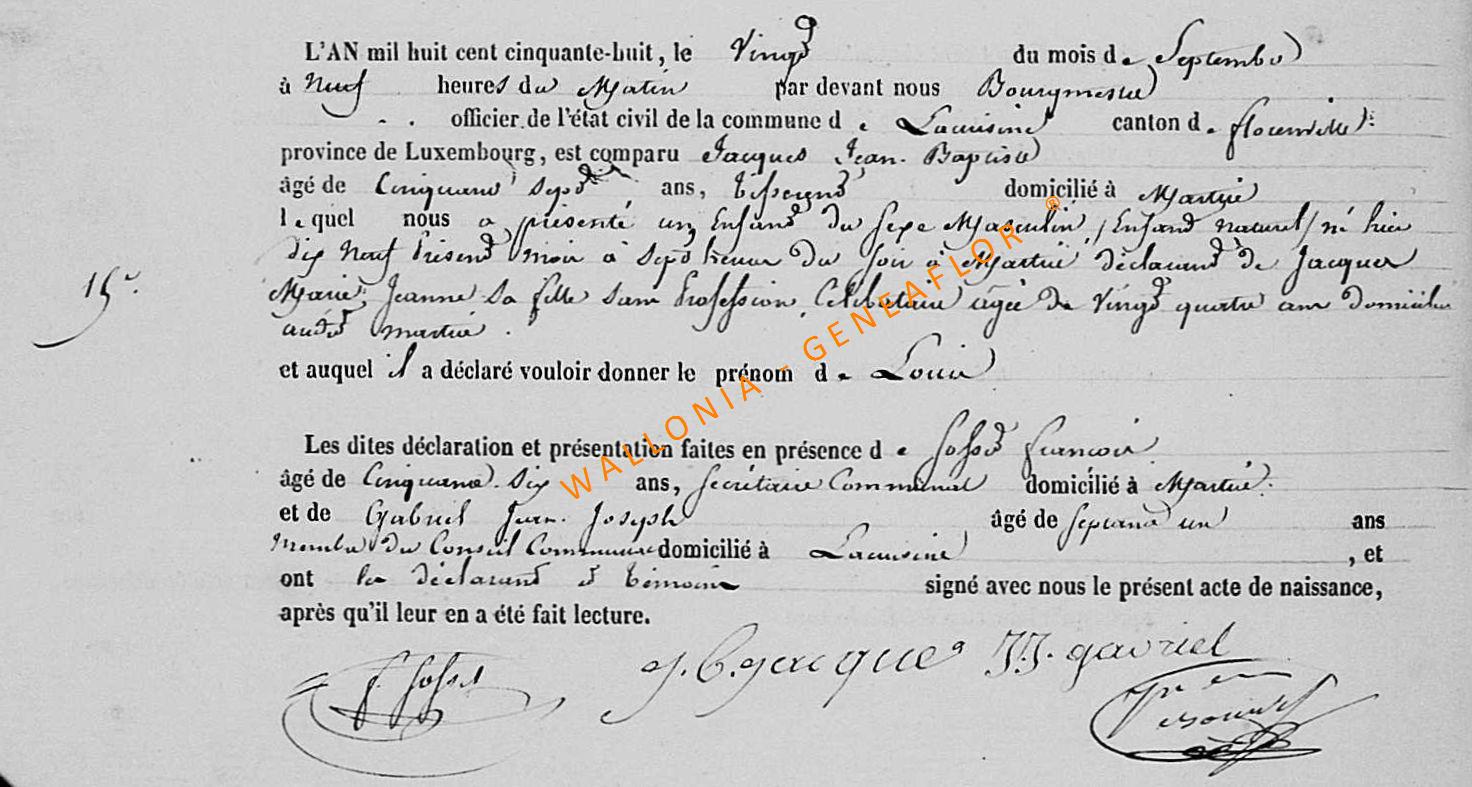 L'AN mil huit cent cinquante-huit, le Vingt du mois de Septembre
à Neuf heures du Matin par devant nous Bourgmestre
officier de l'état civil de la commune de Lacuisine canton de florenville
province de Luxembourg, est comparu Jacques Jean-Baptiste
âgé de Cinquante Sept ans, tisserand domicilié à Martué
lequel nous a présenté un Enfant du sexe Masculin, (Enfant naturel) né hier
dix Neuf Présent mois à Sept heures du Soir à Martué déclarant de Jacques
15e.
Marie, Jeanne Sa fille Sans Profession, Célibataire âgée de Vingt quatre ans domiciliée
audit martué.
et auquel il a déclaré vouloir donner le prénom de Louis
WALLONIA - GENEAFLOR ®
Les dites déclaration et présentation faites en présence de françois
âgé de Cinquante Six ans, Secrétaire Communal domicilié à Martué.
et de Gabriel Jean-Joseph âgé de Septante un ans
Membre du Conseil Communal domicilié à Lacuisine, et
ont les déclarant et témoins signé avec nous le présent acte de naissance,
après qu'il leur en a été fait lecture.
J. B. Jacques J.J. gavriel